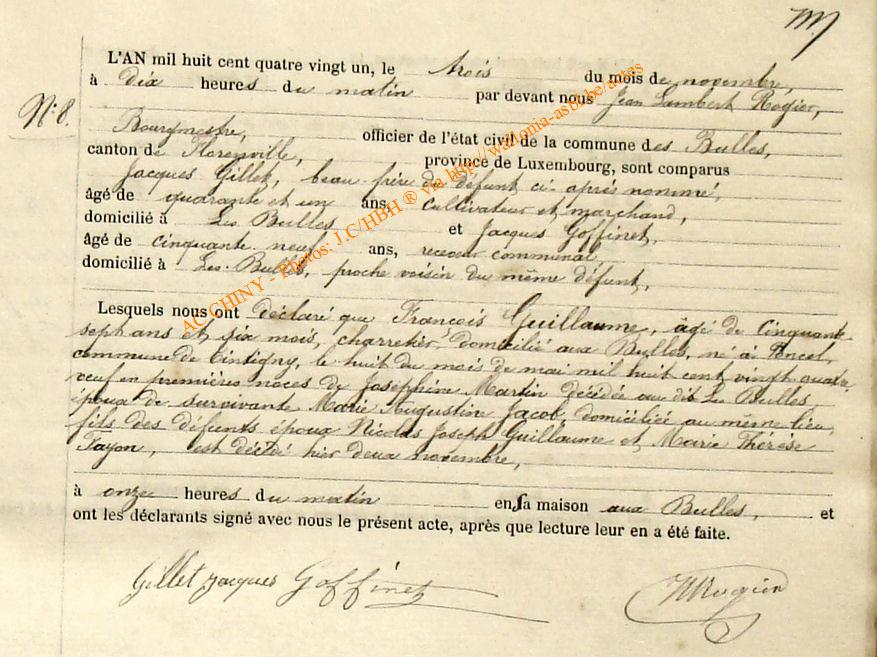 L'AN mil huit cent quatre vingt un, le trois du mois de novembre,
à dix heures du matin par devant nous Jean Lambert Rogier,
N° 8.
Bourgmestre, officier de l'état civil de la commune des Bulles,
canton de Florenville, province de Luxembourg, sont comparus
Jacques Gillet, beau frère du défunt ci après nommé,
âgé de quarante et un ans, cultivateur et marchand,
domicilié à Les Bulles et Jacques Goffinet,
âgé de cinquante neuf ans, receveur communal,
domicilié à Les Bulles, proche voisin du même défunt,
Lesquels nous ont déclaré que François Guillaume, âgé de Cinquante
sept ans et six mois, charretier, domicilié aux Bulles, né à Poncel
commune de Tintigny, le huit du mois de mai mil huit cent vingt quatre
veuf en premières noces de Joséphine Martin décédée au dit Les Bulles
époux de survivante Marie Augustin Jacob, domiciliée au même lieu,
fils des défunts époux Nicolas Joseph Guillaume et Marie Thérèse
Fayon, est décédé hier deux novembre,
à onze heures du matin en sa maison aux Bulles, et
ont les déclarants signé avec nous le présent acte, après que lecture leur en a été faite.
Gillet Jacques Goffinet JLRogier
AC CHINY - Photos: J.C/HBH ® via http://wallonia-asbl.be/actes